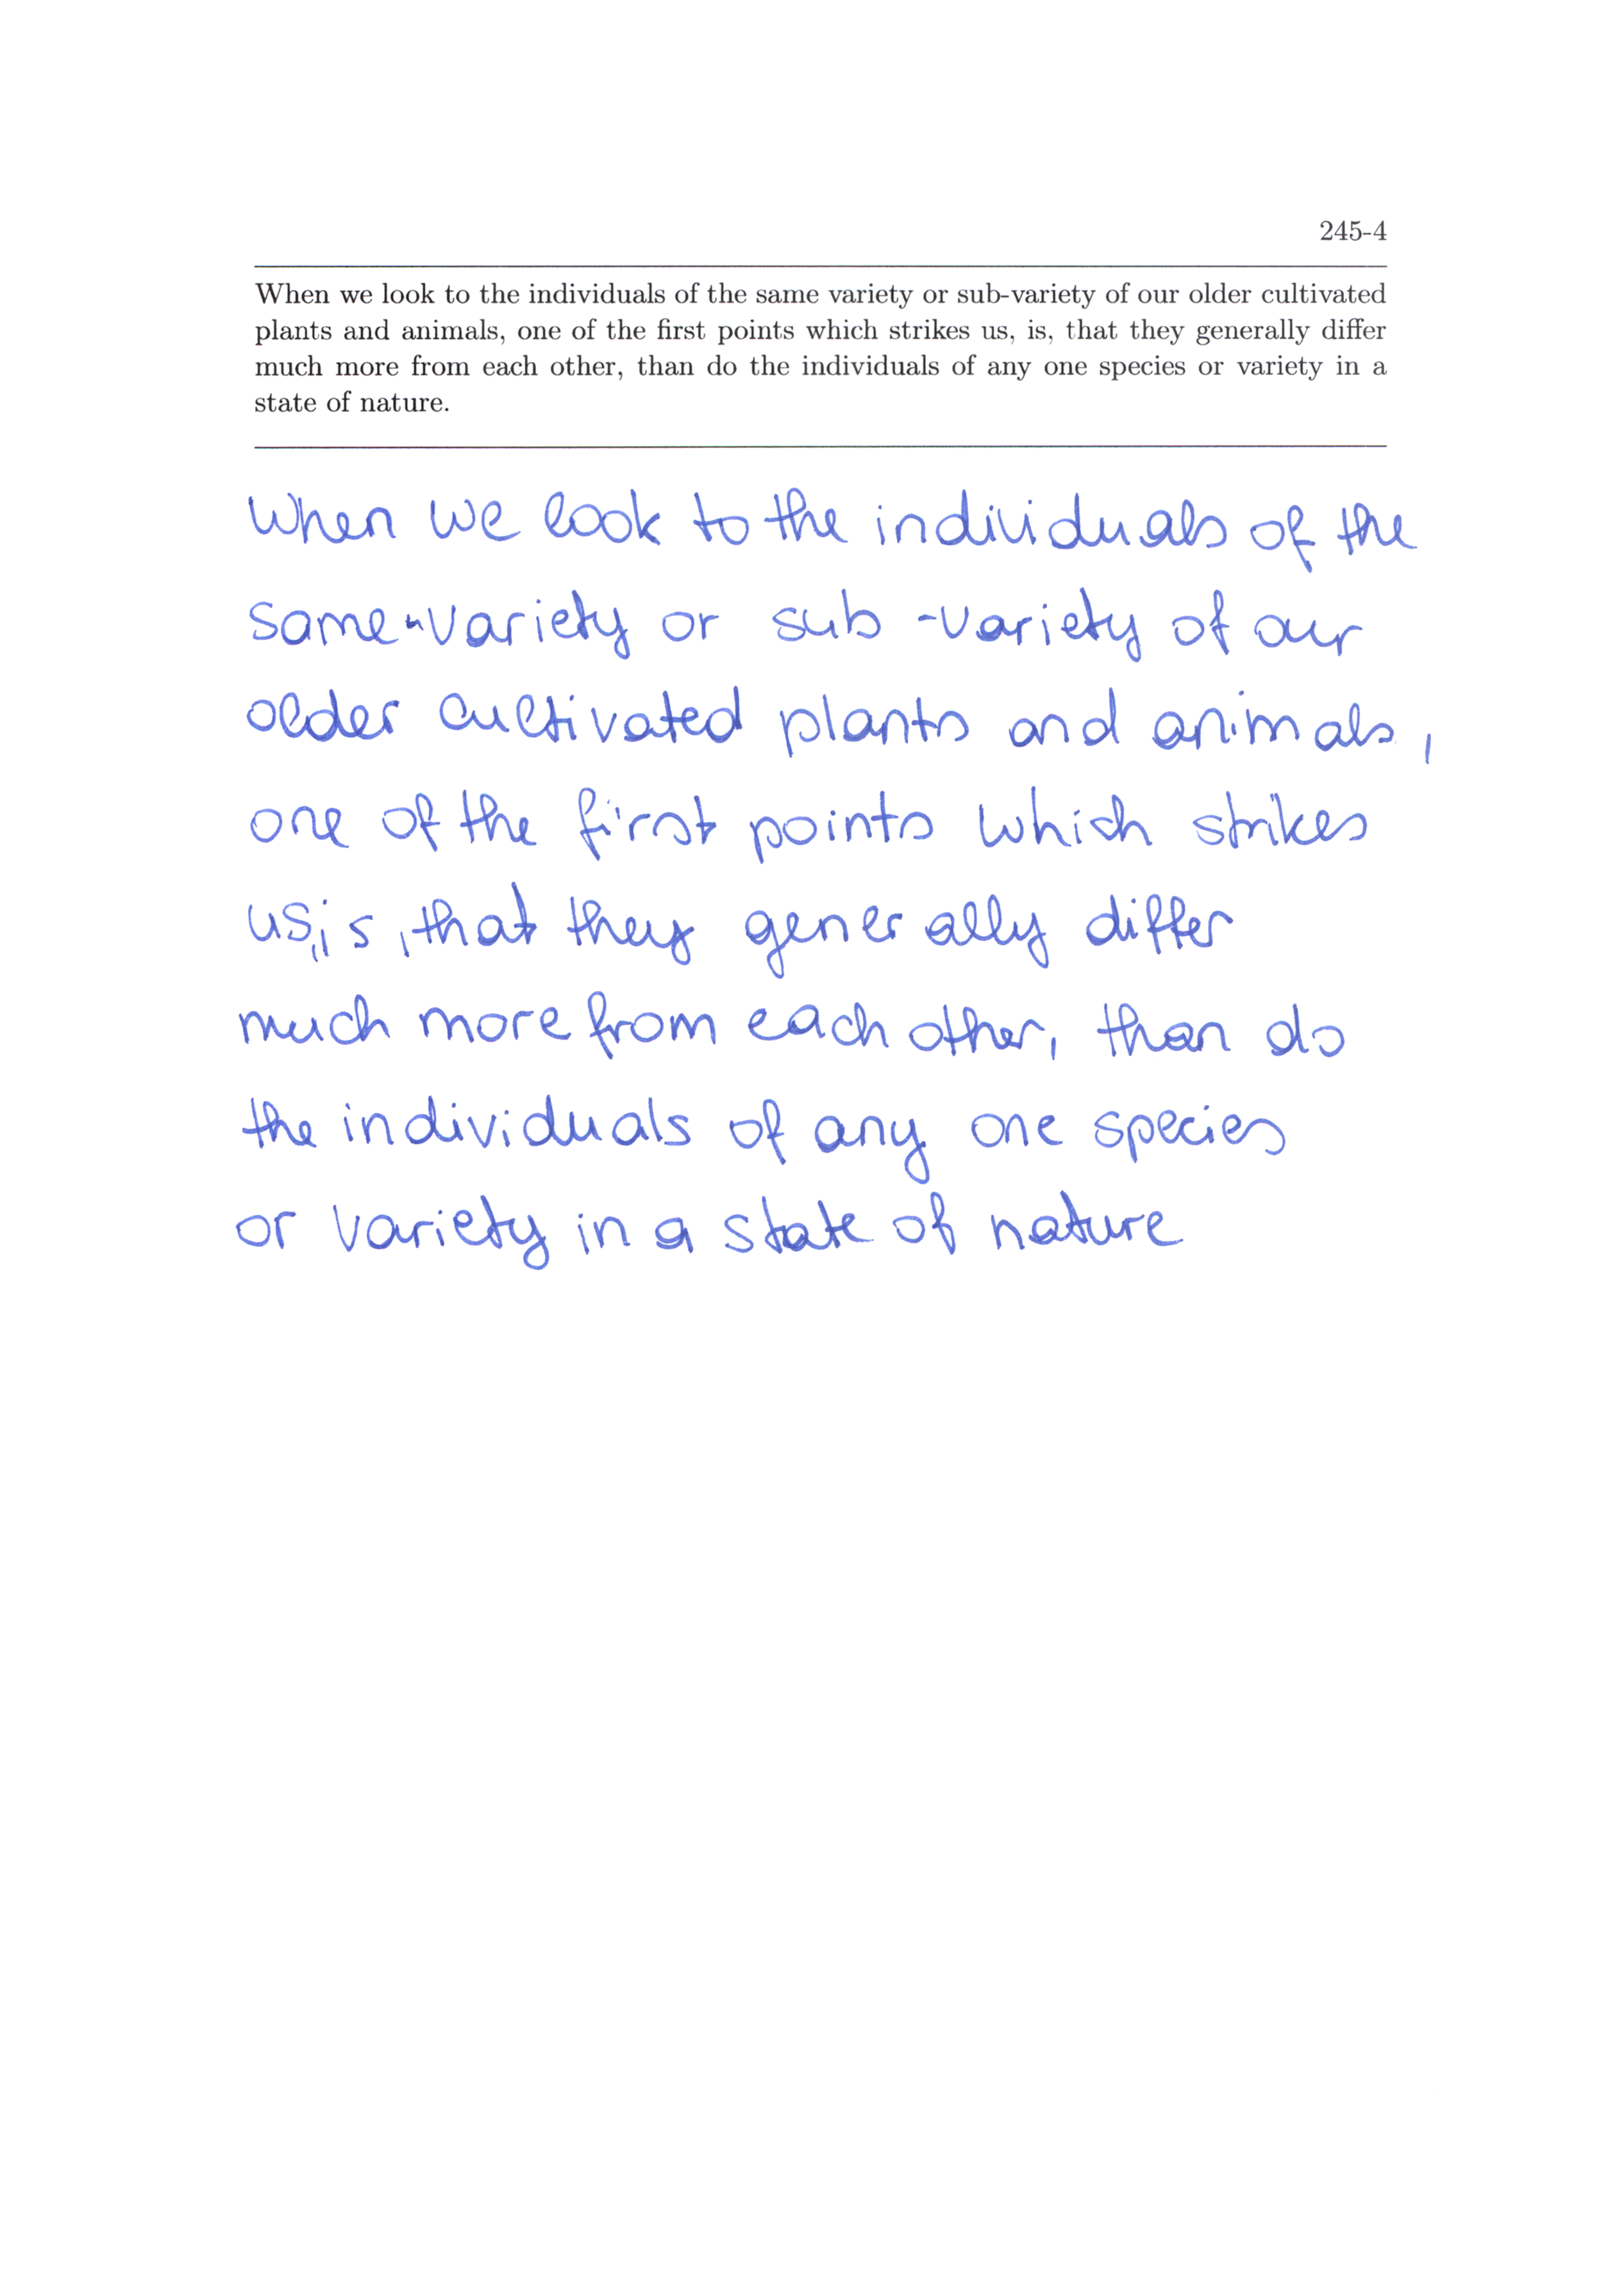 245-4
When we look to the individuals of the same variety or sub-variety of our older cultivated
plants and animals, one of the first points which strikes us, is, that they generally differ
much more from each other, than do the individuals of any one species or variety in a
state of nature.
When we look to the individuals of the
same-variety or sub-variety of our
older cultivated plants and animals,
one of the first points which strikes
us, is, that they generally differ
much more from each other, than do
the individuals of any one species
or variety in a state of nature